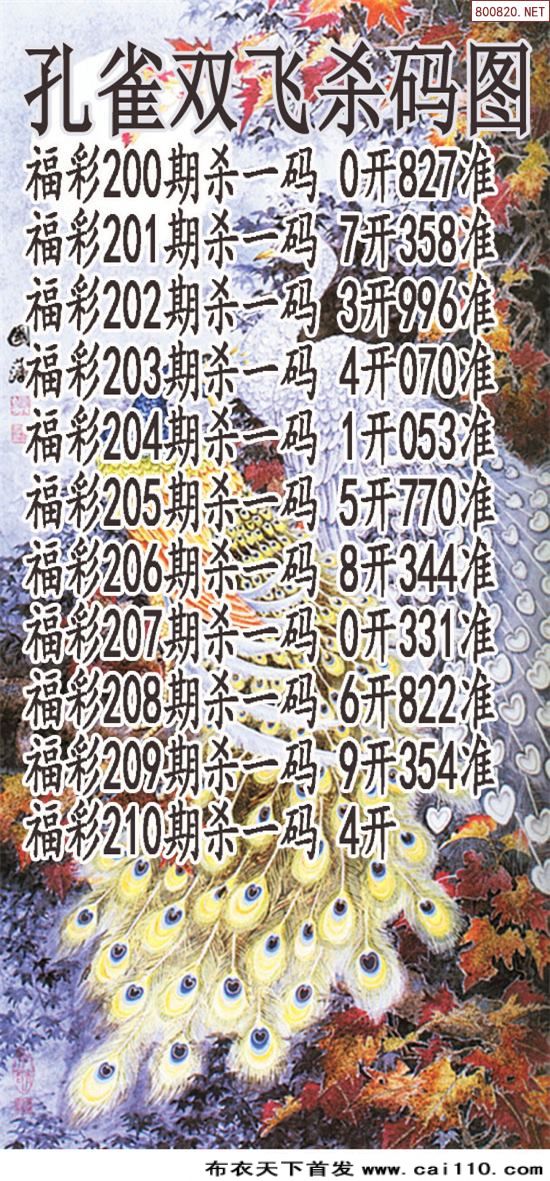 800820.NET
孔雀双飞杀码图
福彩200期杀一码 0开827准
福彩201期杀一码 7开358准
福彩202期杀一码 3开996准
福彩203期杀一码 4开070准
福彩204期杀一码 1开053准
福彩205期杀一码 5开770准
福彩206期杀一码 8开344准
福彩207期杀一码 0开331准
福彩208期杀一码 6开822准
福彩209期杀一码 9开354准
福彩210期杀一码 4开
布衣天下首发 www.cai110.com